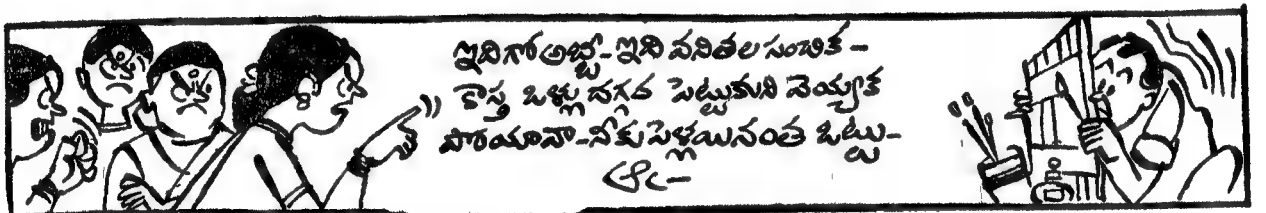 ఇదిగో అబ్బో-ఇది వనితల సంచిక-
కాస్త ఒళ్లు దగ్గర పెట్టుకుని వెయ్యక
పోయావా-నీకు పెళ్లయినంత ఒట్టు-
ఆఁ-